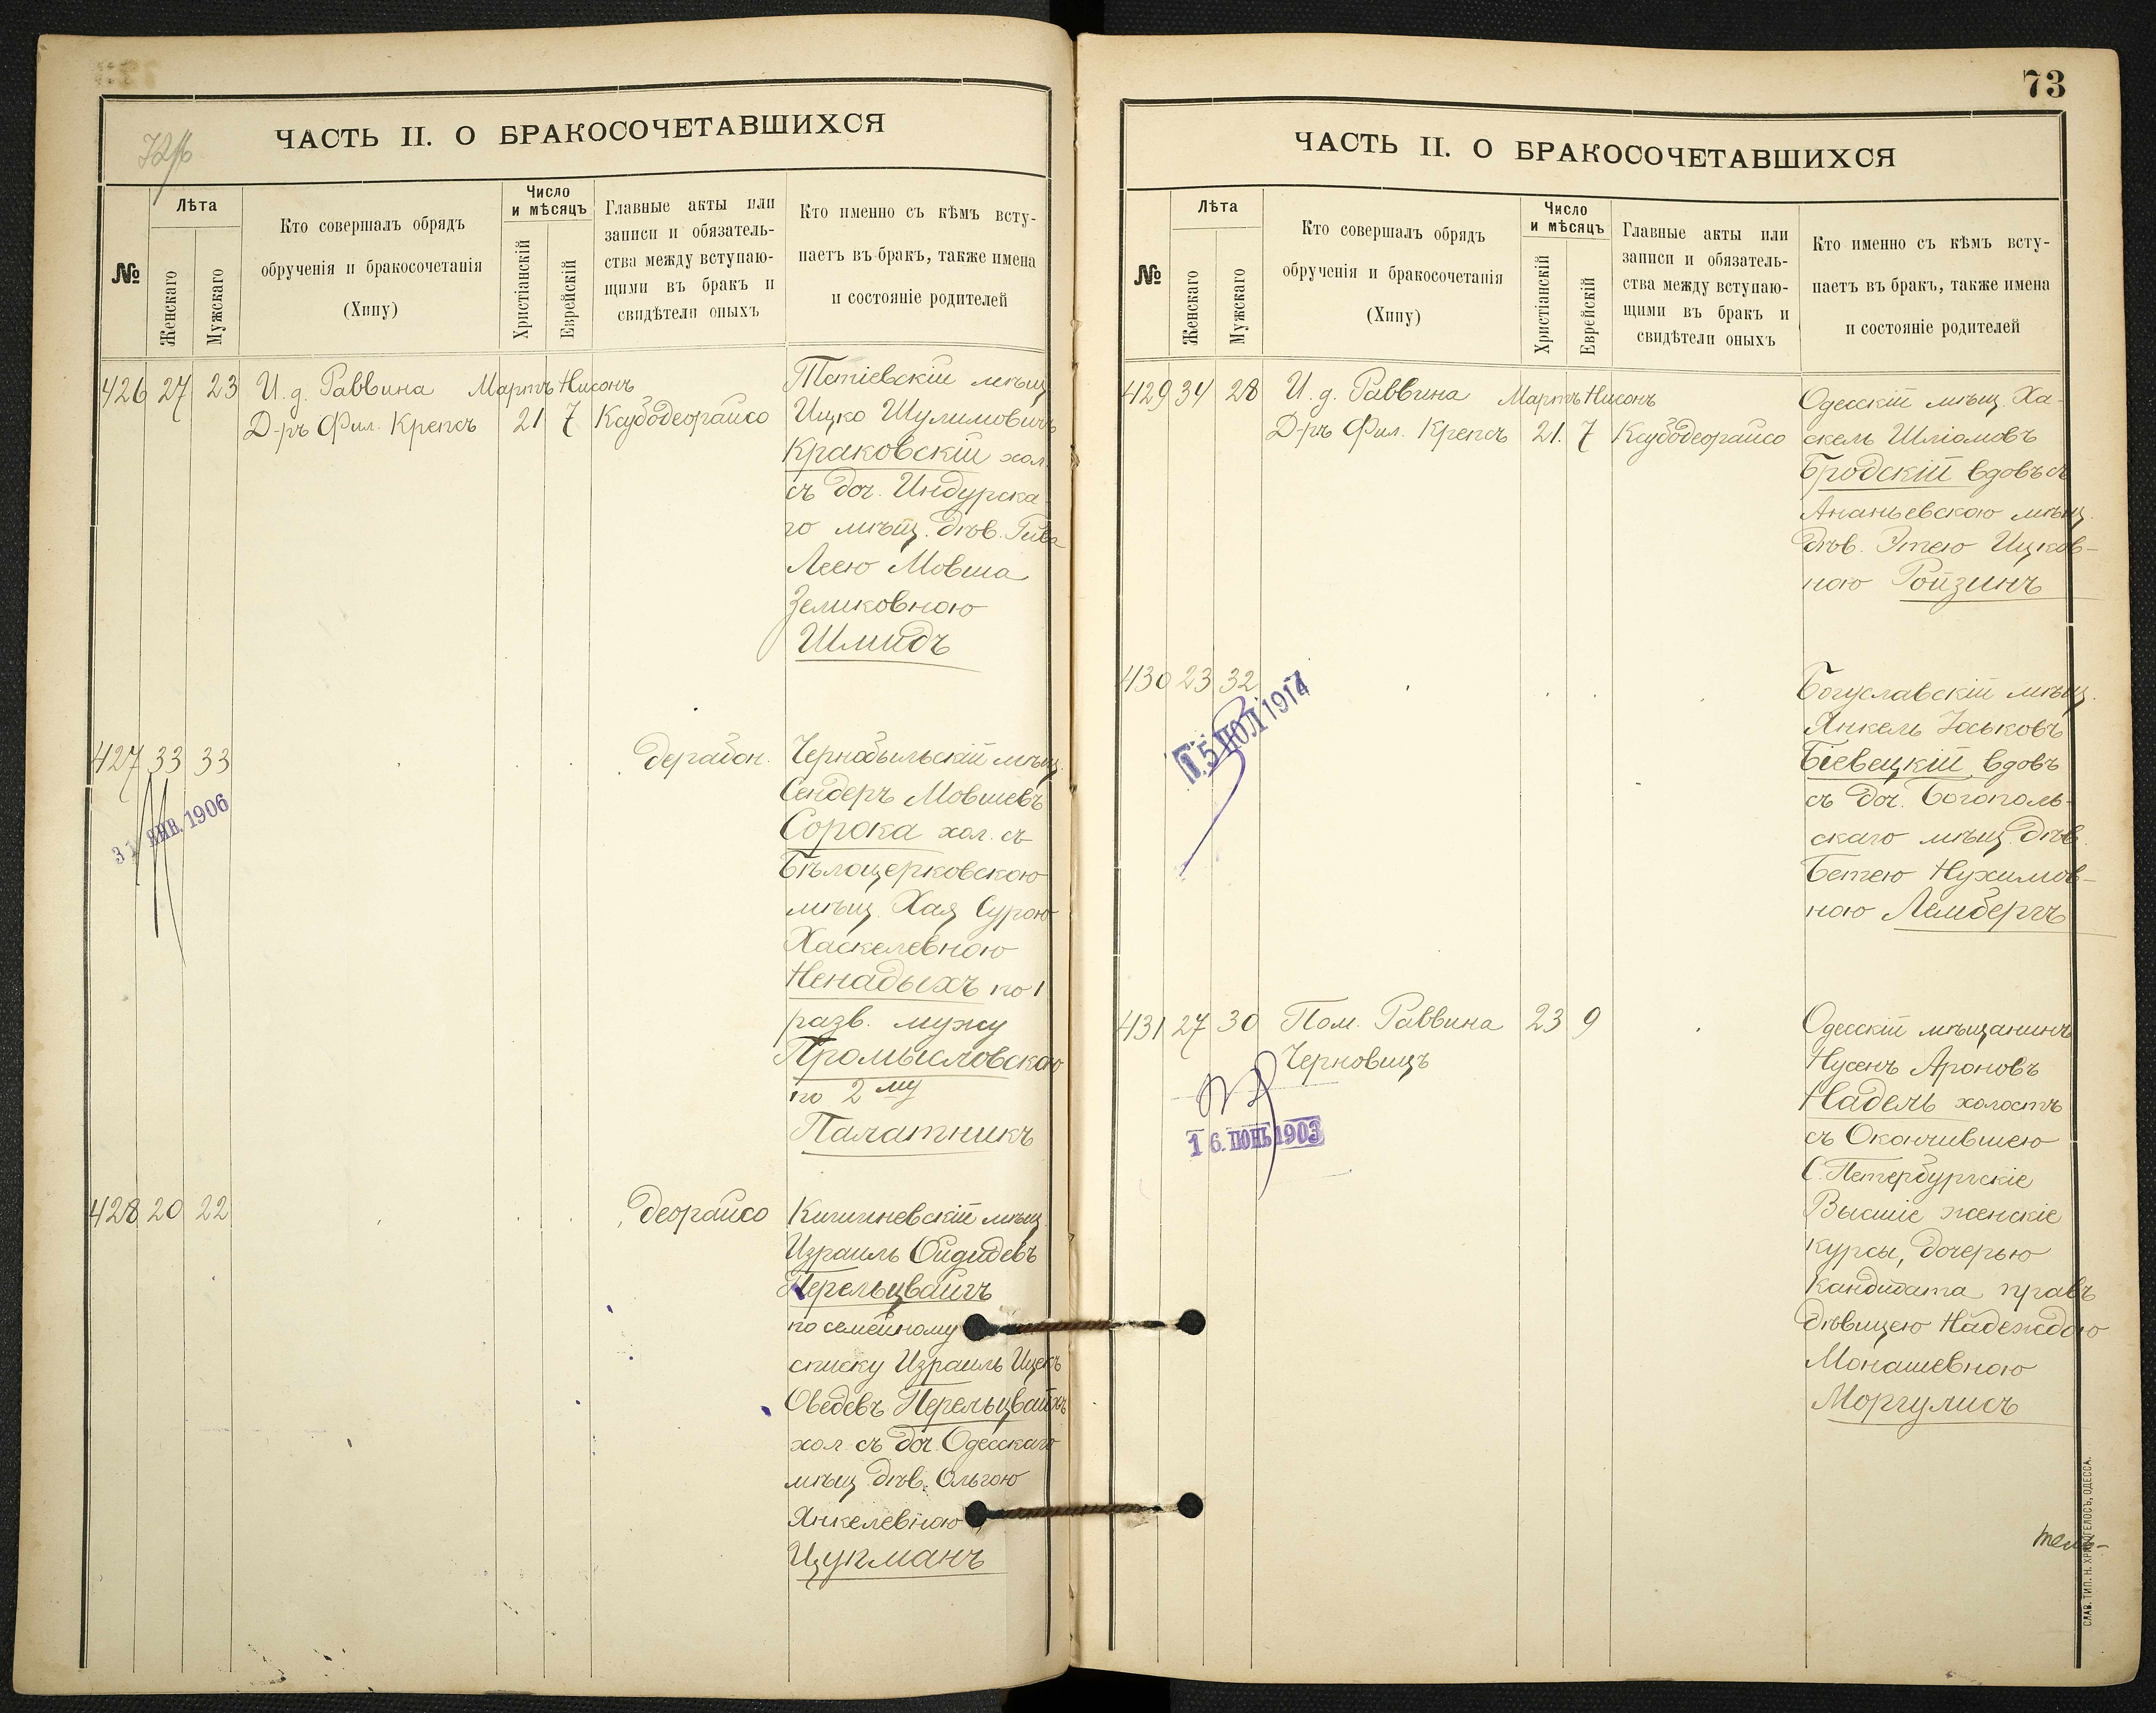 72 об
ЧАСТЬ II. О БРАКОСОЧЕТАВШИХСЯ
№
Лѣта
Женскаго
Мужскаго
Кто совершалъ обрядъ
обрученія и бракосочетанія
(Хипу)
Число
и мѣсяцъ
Христіанскій
Еврейскій
Главные акты или
записи и обязатель-
ства между вступаю-
щими въ бракъ и
свидѣтели оныхъ
Кто именно съ кѣмъ всту-
паетъ въ бракъ, также имена
и состояніе родителей
426 27 23 И. д. Раввина Мартъ Нисонъ
Д-ръ Фил. Крепсъ 21 7 Ксубодеорайсо
Тетіевскій мѣщ.
Ицко Шулимовичъ
Краковскій хол.
съ доч. Индурска-
го мѣщ. дѣв. Рива
Леею Мовша
Зеликовною
Шмидъ
427 33 33 дерабон.
31 ЯНВ. 1906
Чернобыльскій мѣщ.
Сендеръ Мовшевъ
Сорока хол. съ
Бѣлоцерковскою
мѣщ. Хая Сурою
Хаскелевною
Ненадыхъ по 1
разв. мужу
Промысловскою
по 2му
Палатникъ
428 20 22 деорайсо
Кишиневскій мѣщ.
Израиль Ойдидевъ
Перельцвайгъ
по семейному
списку Израиль Ицекъ
Оведевъ Перельцвайгъ
хол. съ доч. Одесскаго
мѣщ. дѣв. Ольгою
Янкелевною
Цукманъ
73
ЧАСТЬ II. О БРАКОСОЧЕТАВШИХСЯ
№
Лѣта
Женскаго
Мужскаго
Кто совершалъ обрядъ
обрученія и бракосочетанія
(Хипу)
Число
и мѣсяцъ
Христіанскій
Еврейскій
Главные акты или
записи и обязатель-
ства между вступаю-
щими въ бракъ и
свидѣтели оныхъ
Кто именно съ кѣмъ всту-
паетъ въ бракъ, также имена
и состояніе родителей
429 34 28 И. д. Раввина Мартъ Нисонъ
Д-ръ Фил. Крепсъ 21. 7 Ксубодеорайсо
Одесскій мѣщ. Ха-
скель Шліомовъ
Бродскій вдовъ съ
Ананьевскою мѣщ.
дѣв. Этею Ицков-
ною Ройзинъ
430 23 32
15 ІЮЛ 1914
Богуславскій мѣщ.
Янкель Іоськовъ
Біевецкій вдовъ
съ доч. Богополь-
скаго мѣщ. дѣв.
Бетею Нухимов-
ною Лембергъ
431 27 30 Пом. Раввина 23 9
Черновицъ
16. ІЮНЬ 1903
Одесскій мѣщанинъ
Нусенъ Ароновъ
Надель холостъ
съ Окончившею
С. Петербургскіе
Высшіе женскіе
курсы, дочерью
Кандидата правъ
дѣвицею Надеждою
Монашевною
Моргулисъ
СЛАВ. ТИП. Н. ХРИСОГЕЛОСЪ, ОДЕССА.